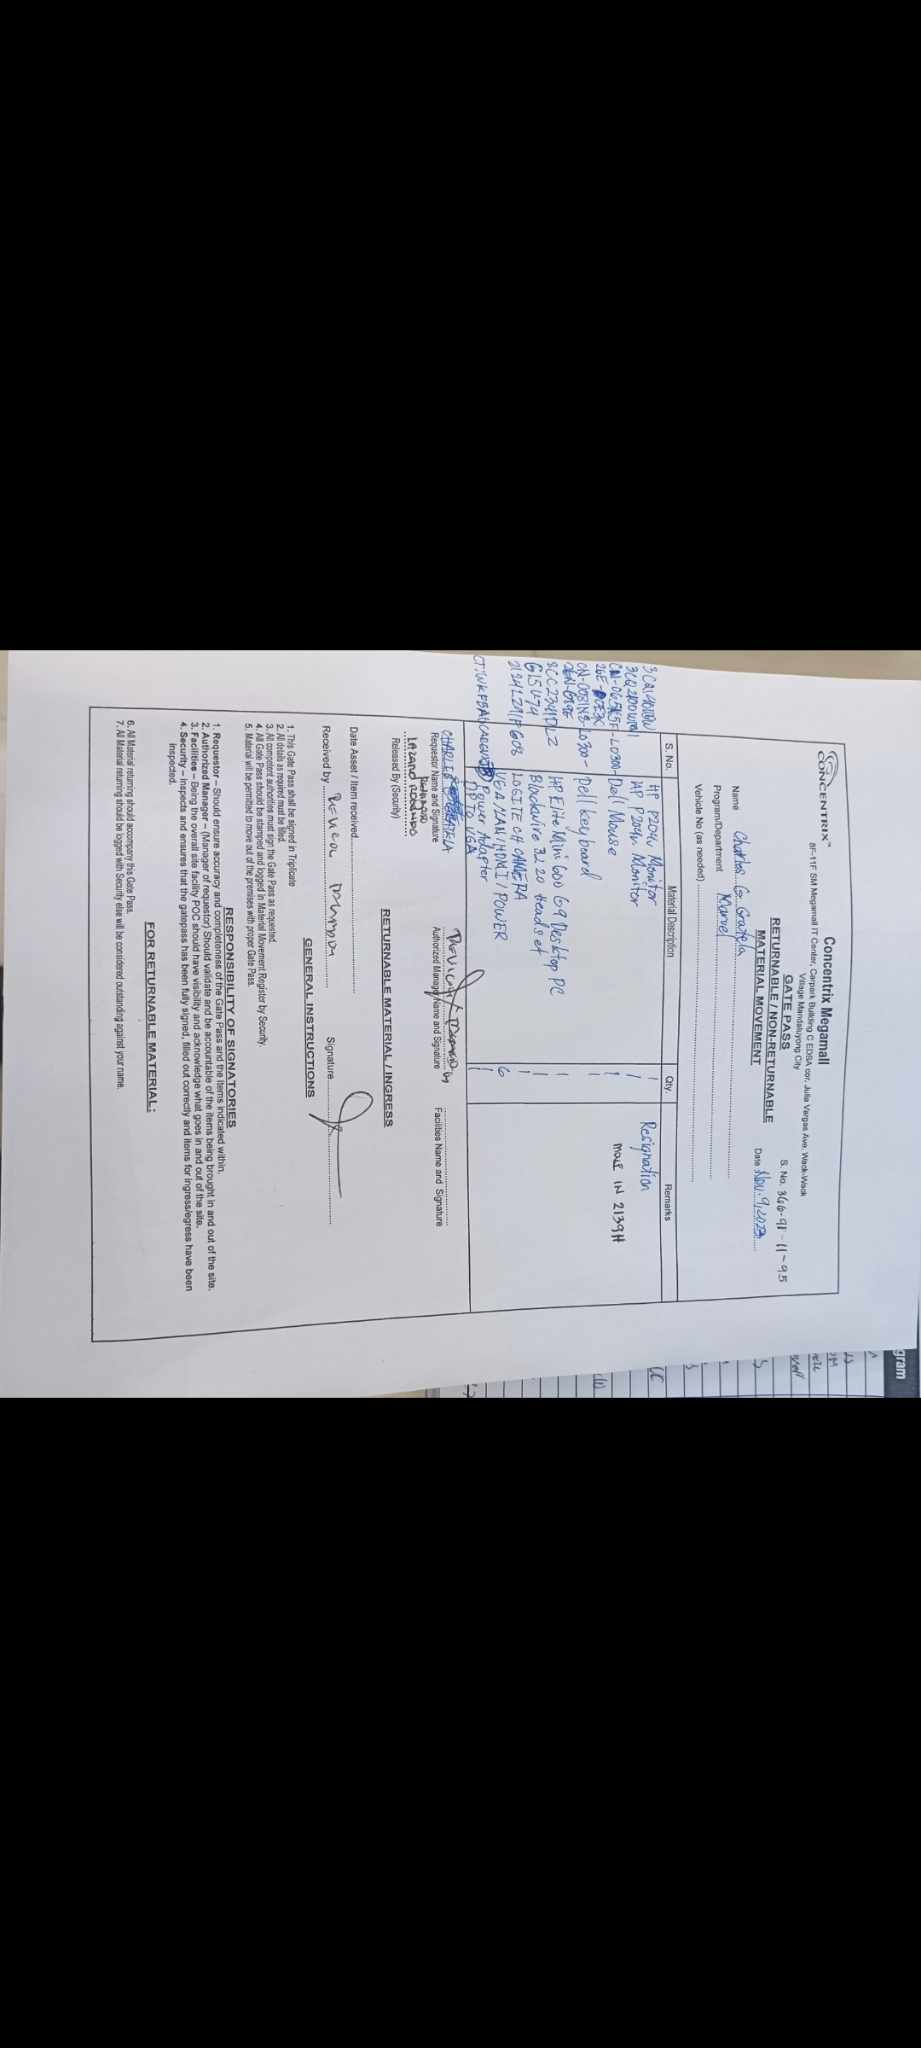 CONCENTRIX™
Concentrix Megamall
8F-11F SM Megamall IT Center, Carpark Building C EDSA cor. Julia Vargas Ave. Wack-Wack
Village Mandaluyong City
GATE PASS
RETURNABLE / NON-RETURNABLE
MATERIAL MOVEMENT
S. No. 366-91-11-95
Date Nov. 9, 2023
Name Charles G. Gratela
Program/Department Marvel
Vehicle No (as needed)
S. No. Material Description Qty. Remarks
HP P204v Monitor 1 Resignation
HP P204v Monitor 1
Dell Mouse 1 MOLE IN 2139H
Dell keyboard 1
HP Elite Mini 600 G9 Desktop PC 1
G15U74 Blackwire 3220 Headset 1
LOGITECH CAMERA 1
VGA/LAN/HDMI/POWER 6
Power Adapter 1
DP TO VGA 1
CHARLES
Requestor Name and Signature Authorized Manager Name and Signature Facilities Name and Signature
Released By (Security)
RETURNABLE MATERIAL / INGRESS
Date Asset / Item received
Received by Signature
GENERAL INSTRUCTIONS
1. This Gate Pass shall be signed in Triplicate
2. All details as required must be filled.
3. All competent authorities must sign the Gate Pass as requested.
4. All Gate Pass should be stamped and logged in Material Movement Register by Security.
5. Material will be permitted to move out of the premises with proper Gate Pass.
RESPONSIBILITY OF SIGNATORIES
1. Requestor – Should ensure accuracy and completeness of the Gate Pass and the items indicated within.
2. Authorized Manager – (Manager of requestor) Should validate and be accountable of the items being brought in and out of the site.
3. Facilities – Being the overall site facility POC should have visibility and acknowledge what goes in and out of the site.
4. Security – Inspects and ensures that the gatepass has been fully signed, filled out correctly and items for ingress/egress have been
inspected.
FOR RETURNABLE MATERIAL:
6. All Material returning should accompany this Gate Pass.
7. All Material returning should be logged with Security else will be considered outstanding against your name.
gram